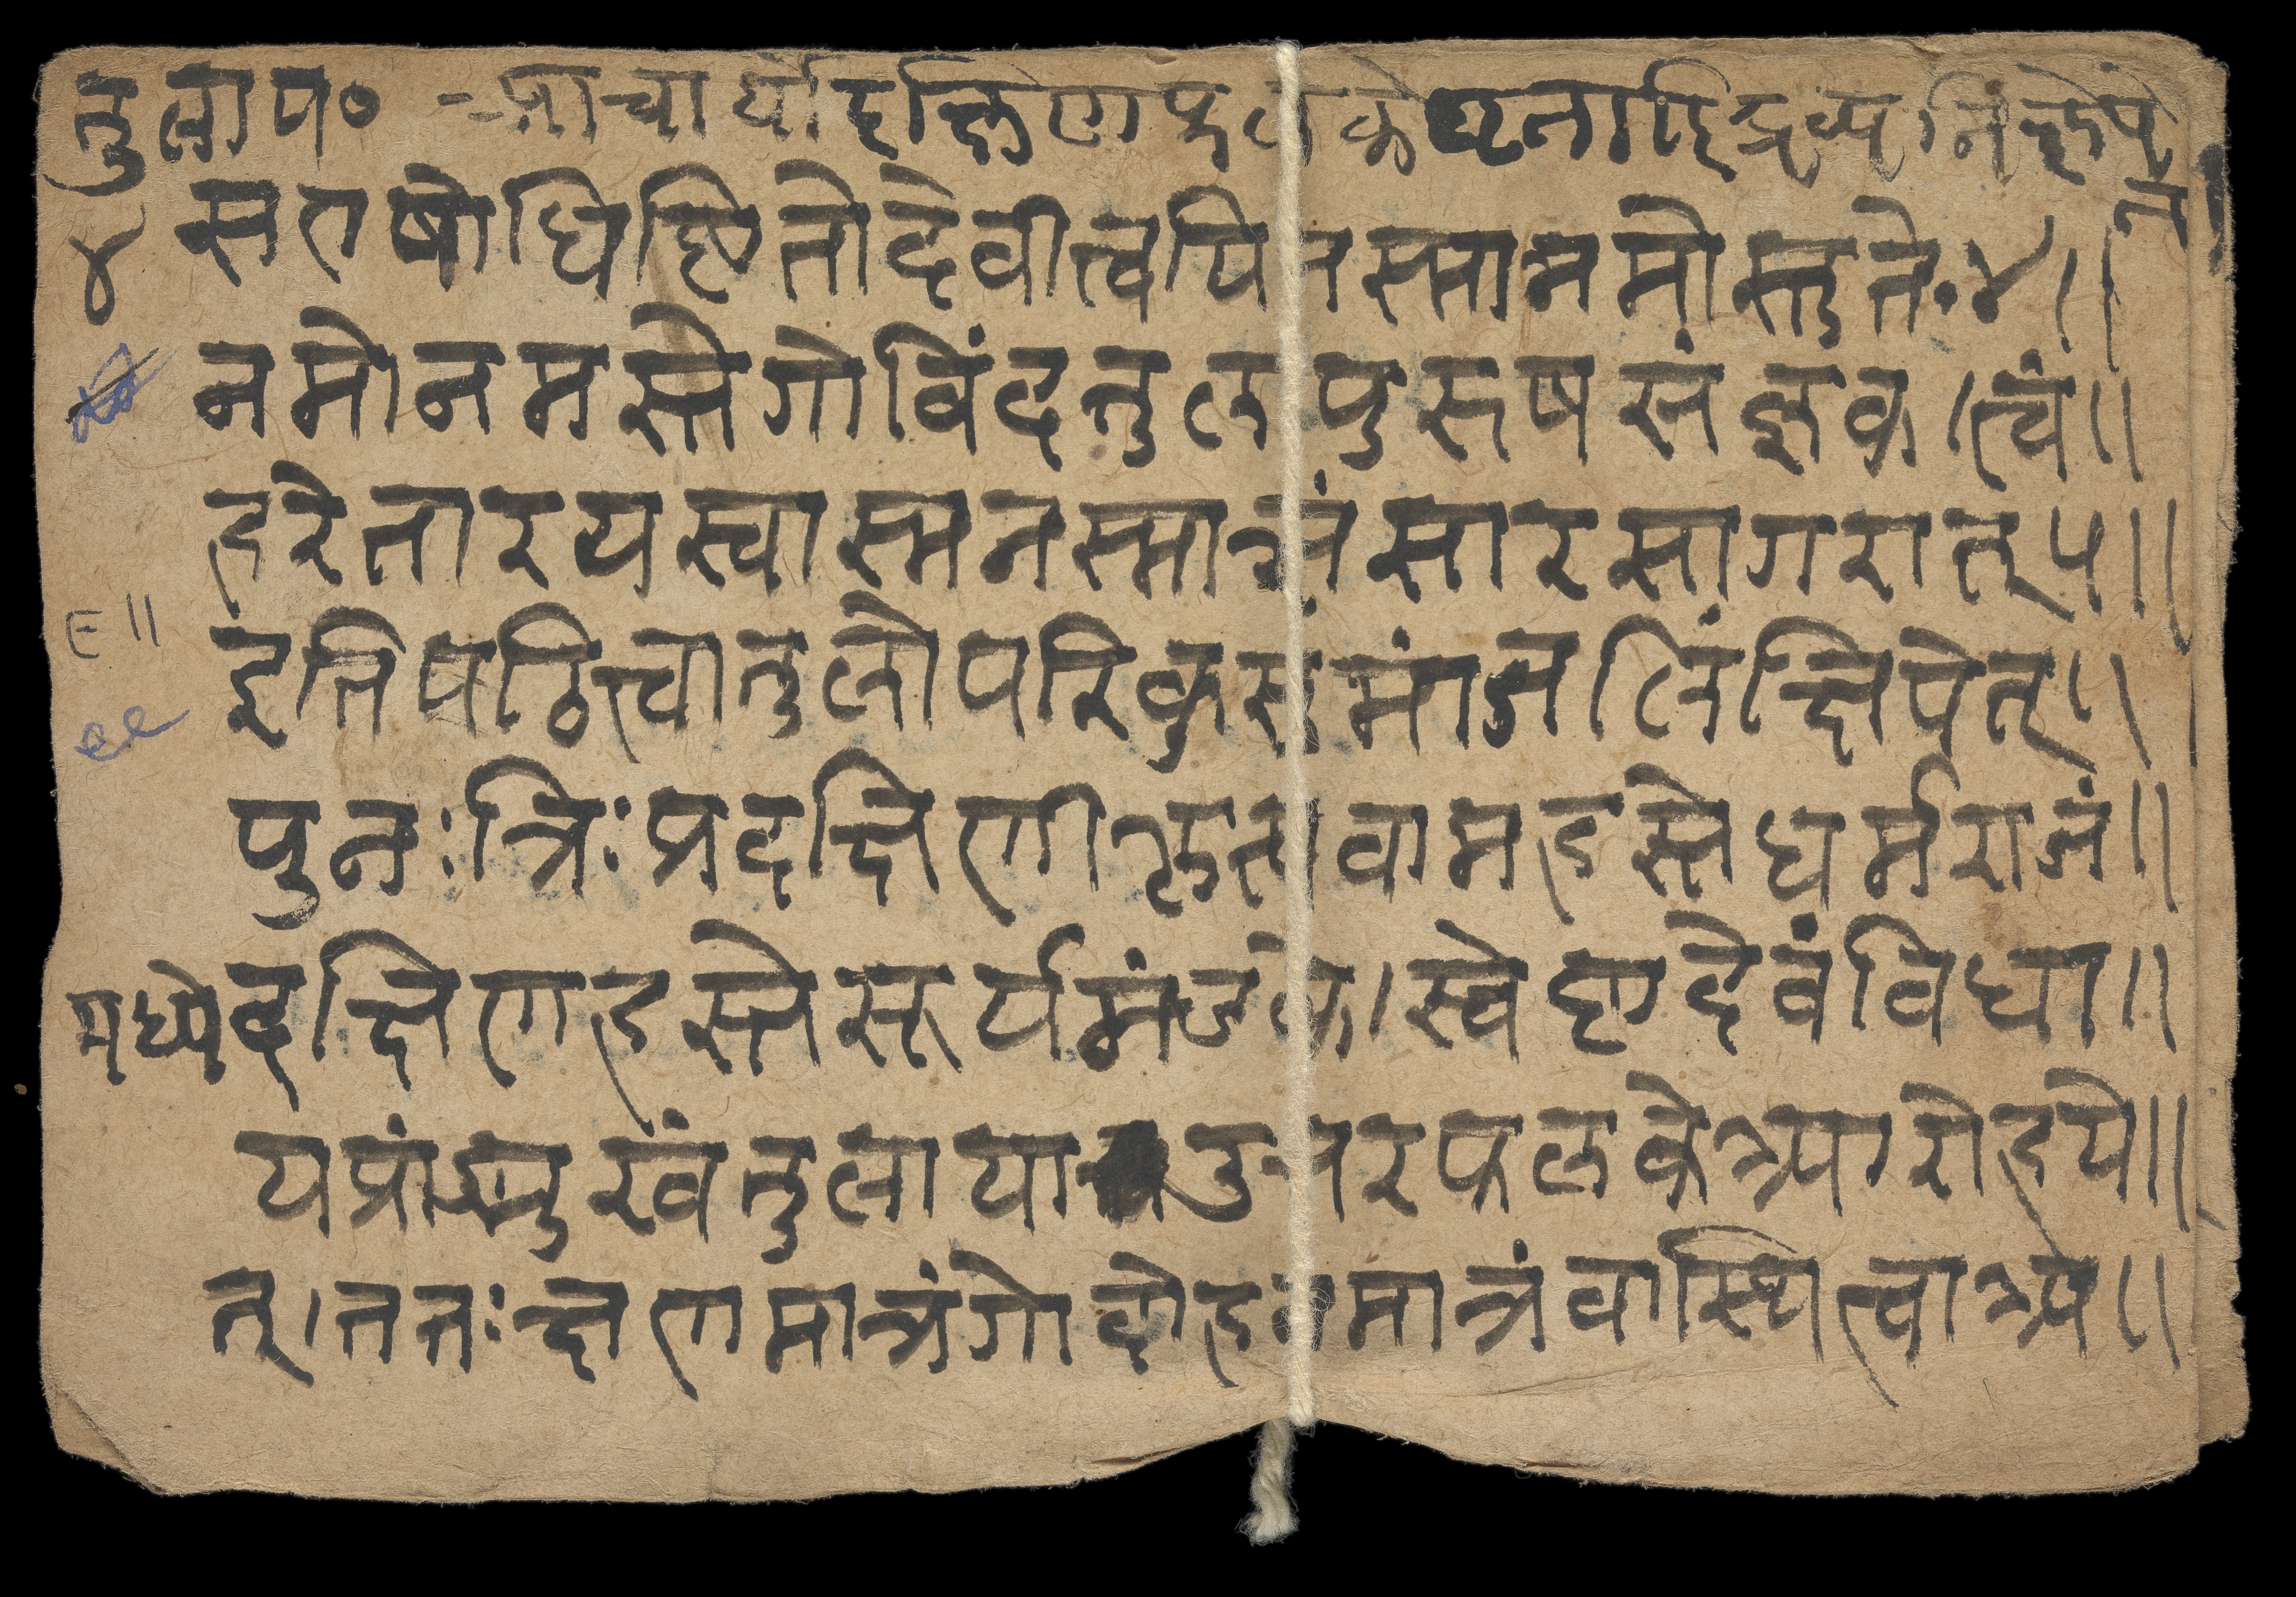 तुलाप० आचार्यो दक्षिणफलके घृतादिद्रव्य निक्षेपे
त्
४ स एषोधिष्ठितो देवी त्वयि तस्मान्नमोस्तुते ४॥
नमोनमस्ते गोविंद तुलापुरुषसंज्ञक । त्वं॥
हरे तारयस्वास्मनस्मात्संसारसागरात् ५॥
६॥ इति पठित्वा तुलोपरि कुसुमांजलिं क्षिपेत्॥
११ पुनः त्रिः प्रदक्षिणीकृत्य वामहस्ते धर्मराजं॥
मध्ये दक्षिणहस्ते सूर्यमंडके । स्वेष्टदेवं विधा॥
य प्रांङ्मुखं तुलाया उत्तरफलके आरोहये॥
त् । ततः क्षणमात्रं गोदोहनमात्रं वा स्थित्वा अप॥